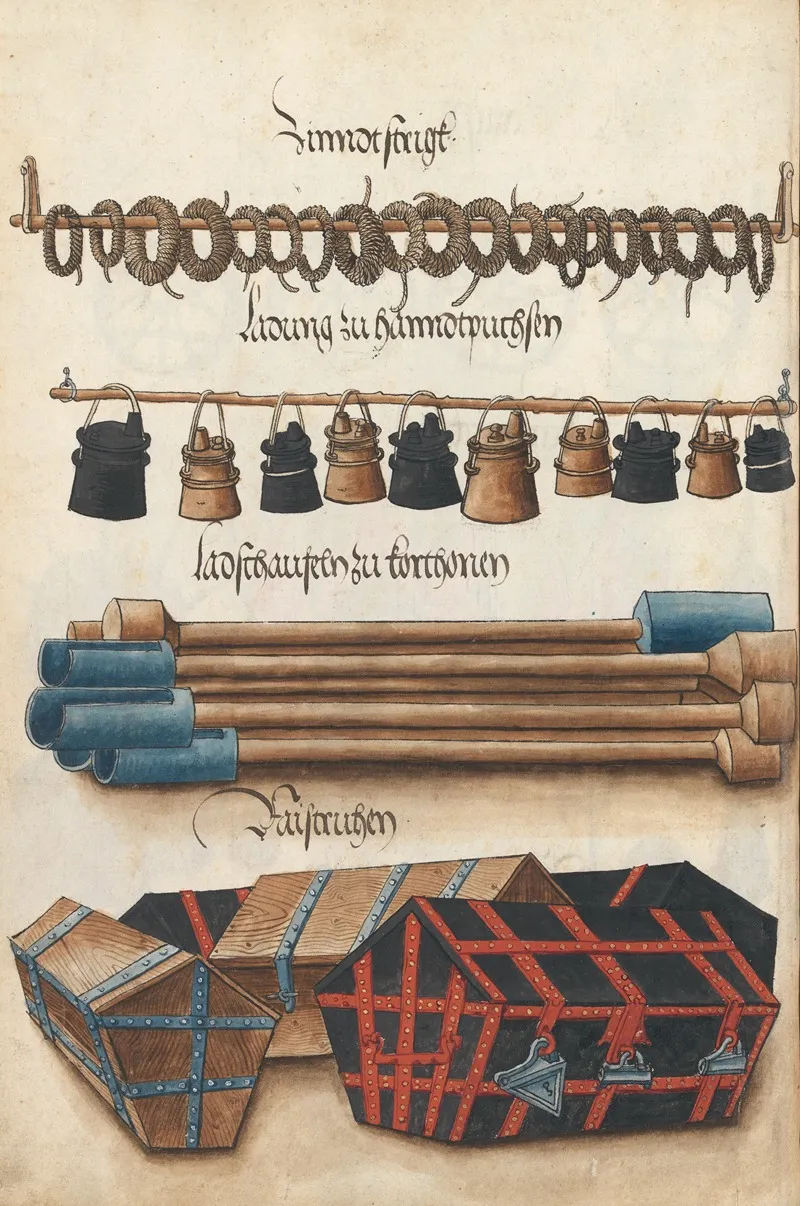 Zinndtstrigk
Ladung zu hanndtpuchsen
Ladschaufeln zu korthonen
Raistruhen